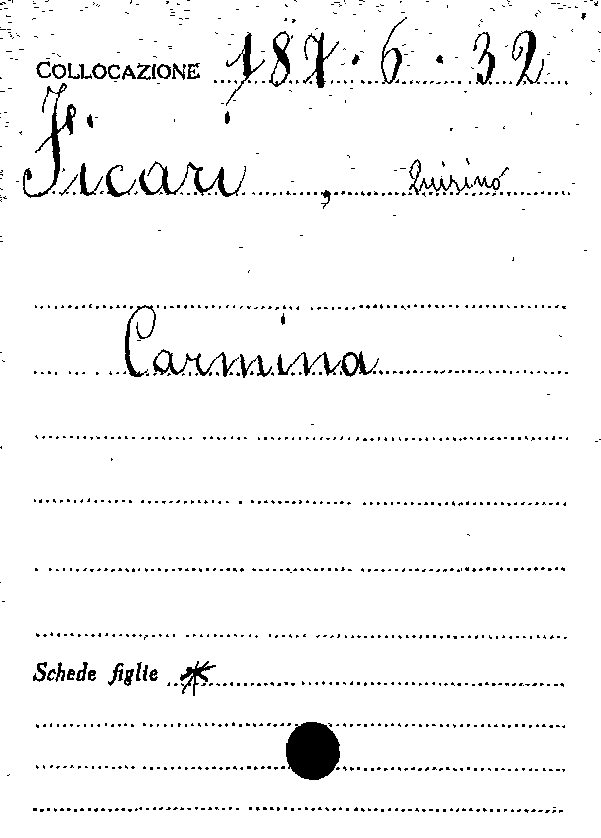 COLLOCAZIONE 187.6.32
Ficari, Quirino
Carmina
Schede figlie *